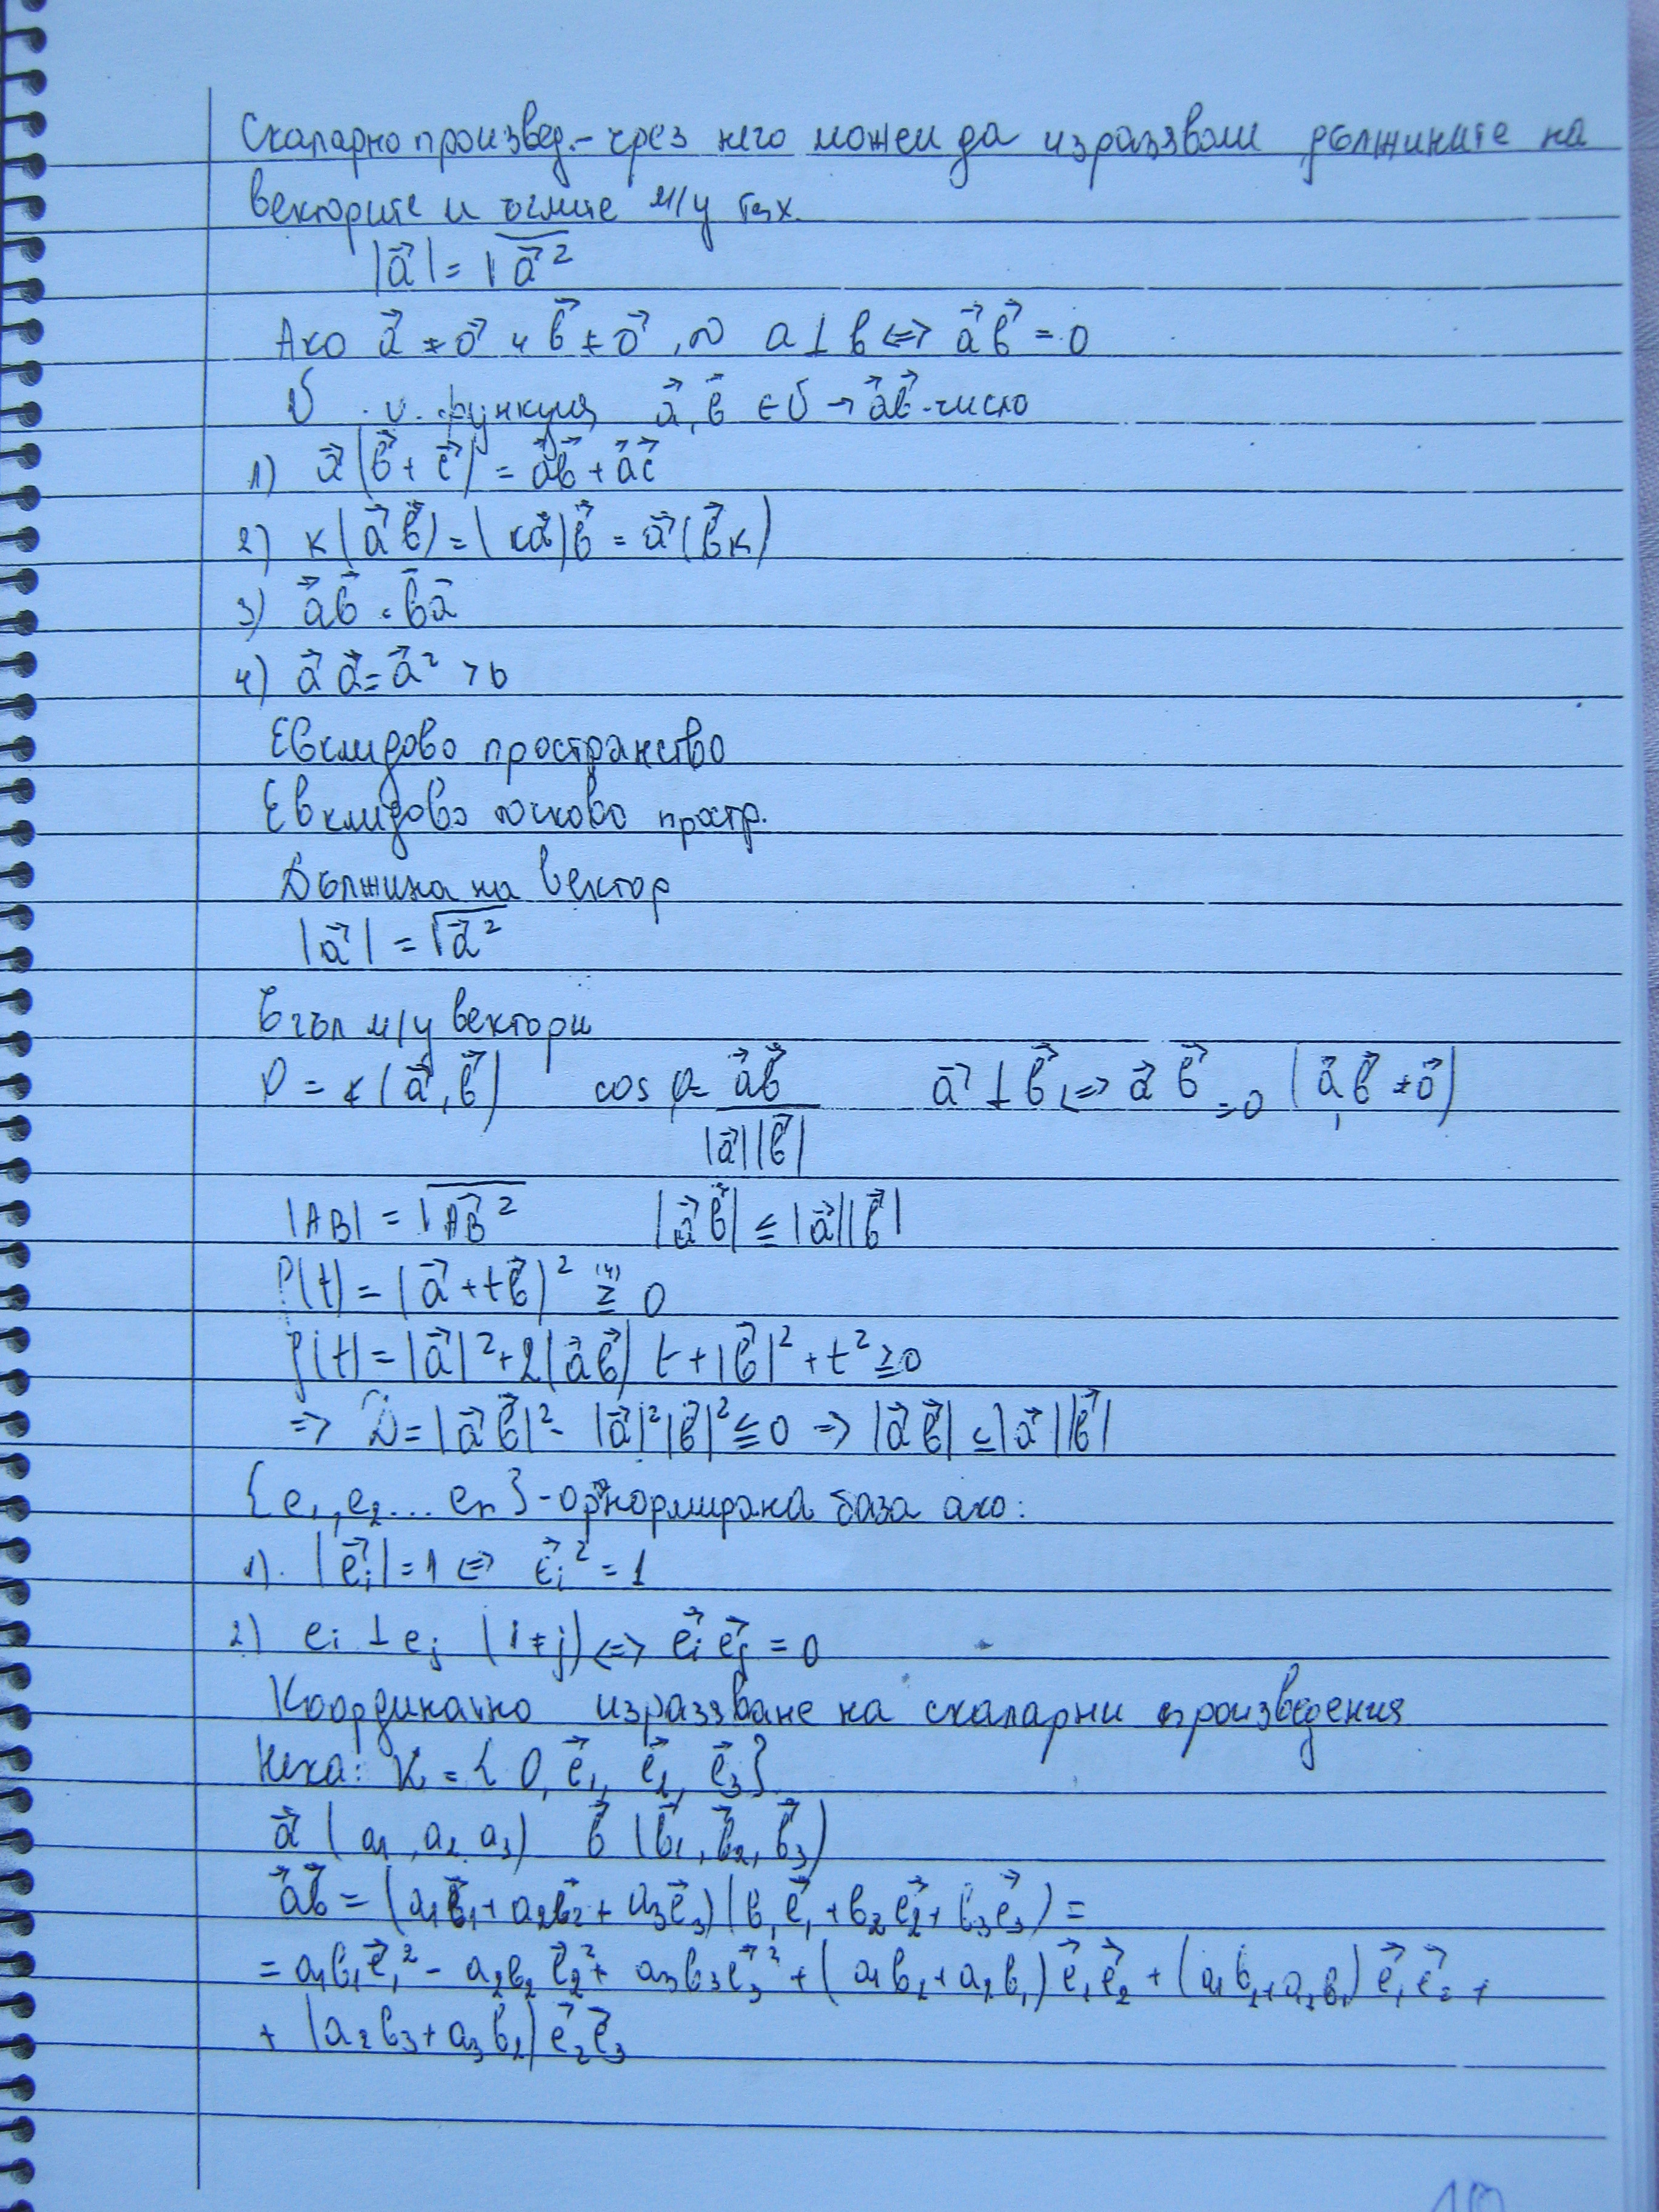 Скаларно произвед. - чрез него можем да изразяваме дължините на
векторите и ъглите м/у тях.
|a⃗| = √a⃗²
Ако a⃗ ≠ o⃗ и b⃗ ≠ o⃗, ~ a ⊥ b <=> a⃗b⃗ = 0
функция a⃗, b⃗ ∈ U → a⃗b⃗ - число
1) a⃗(b⃗ + c⃗) = a⃗b⃗ + a⃗c⃗
2) к(a⃗b⃗) = (кa⃗)b⃗ = a⃗(b⃗к)
3) a⃗b⃗ = b⃗a⃗
4) a⃗a⃗ = a⃗² > 0
Евклидово пространство
Евклидово точково простр.
Дължина на вектор
|a⃗| = √a⃗²
Ъгъл м/у вектори
φ = ∢(a⃗, b⃗) cos φ = a⃗b⃗ / |a⃗||b⃗| a⃗ ⊥ b⃗ <=> a⃗b⃗ = 0 (a⃗, b⃗ ≠ o⃗)
|AB| = √AB⃗² |a⃗b⃗| ≤ |a⃗||b⃗|
f(t) = (a⃗ + tb⃗)² ≥⁽⁴⁾ 0
f(t) = |a⃗|² + 2(a⃗b⃗) t + |b⃗|² + t² ≥ 0
=> D = |a⃗b⃗|² - |a⃗|²|b⃗|² ≤ 0 => |a⃗b⃗| ≤ |a⃗||b⃗|
{e₁, e₂... eₙ} - ортнормирана база ако:
1). |e⃗ᵢ| = 1 <=> e⃗ᵢ² = 1
2) eᵢ ⊥ eⱼ (i ≠ j) <=> e⃗ᵢe⃗ⱼ = 0
Координатно изразяване на скаларни произведения
Нека: K = {0, e⃗₁, e⃗₂, e⃗₃}
a⃗ (a₁, a₂, a₃) b⃗ (b⃗₁, b⃗₂, b⃗₃)
a⃗b⃗ = (a₁e⃗₁ + a₂e⃗₂ + a₃e⃗₃)(b₁e⃗₁ + b₂e⃗₂ + b₃e⃗₃) =
= a₁b₁e⃗₁² - a₂b₂e⃗₂² + a₃b₃e⃗₃² + (a₁b₂ + a₂b₁)e⃗₁e⃗₂ + (a₁b₂ + a₂b₁)e⃗₁e⃗₂ +
+ (a₂b₃ + a₃b₂)e⃗₂e⃗₃